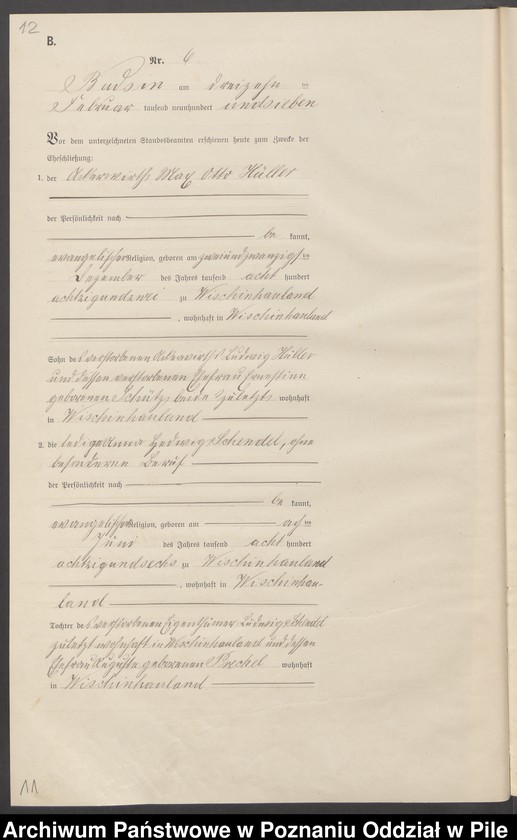 12
B.
Nr. 6
Budsin am dreizehn ten
Februar tausend neunhundert undsieben
Vor dem unterzeichneten Standesbeamten erschienen heute zum Zwecke der
Eheschließung:
1. der Ackerwirth Max Otto Hüller
der Persönlichkeit nach
be kannt,
evangelischer Religion, geboren am zweiundzwanzigsten
Dezember des Jahres tausend acht hundert
achtzigundzwei zu Wischinhauland
, wohnhaft in Wischinhauland
Sohn des verstorbenen Ackerwirths Ludwig Hüller
und dessen verstorbenen Ehefrau Ernestine
geborenen Schütz beide zuletzt wohnhaft
in Wischinhauland
2. die ledige Anna Hedwig Schendel, ohne
besonderen Beruf
der Persönlichkeit nach
be kannt,
evangelischer Religion, geboren am ach ten
Juni des Jahres tausend acht hundert
achtzigundsechs zu Wischinhauland
, wohnhaft in Wischinhau-
land
Tochter des verstorbenen Eigenthümer Ludwig Schendel
zuletzt wohnhaft in Wischinhauland und dessen
Ehefrau Auguste geborenen wohnhaft
in Wischinhauland
11
Archiwum Państwowe w Poznaniu Oddział w Pile